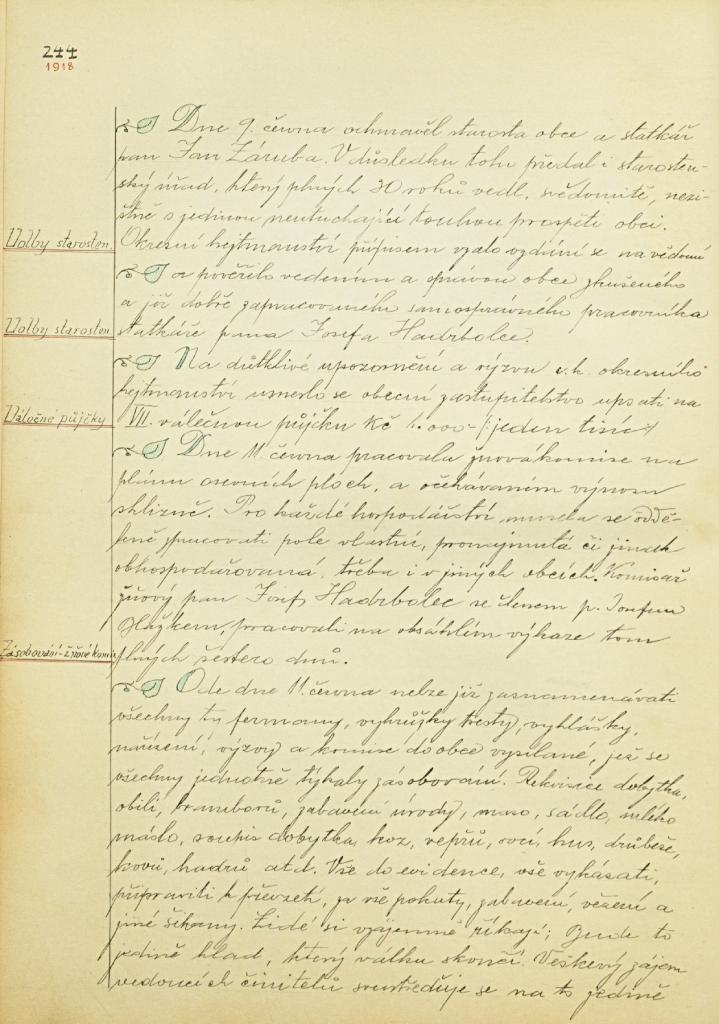 244
1918
Dne 9. června ochuravěl starosta obce a statkář
pan Jan Záruba. V důsledku toho předal i starosten-
ský úřad, který plných 30 roků vedl, svědomitě, nezi-
štně s jedinou neutuchající touhou prospěti obci.
Volby starosten.
Okresní hejtmanství přípisem vzalo vzdání se na vědomí
a pověřilo vedením a správou obce zkušeného
a již dobře zapracovaného samosprávného pracovníka
Volby starosten.
statkáře pana Josefa Hadrbolce.
Na důtklivé upozornění a výzvu c. k. okresního
hejtmanství usneslo se obecní zastupitelstvo upsati na
Válečné půjčky
VII. válečnou půjčku Kč 1.000- /:jeden tisíc:/
Dne 11 června pracovala žňová komise na
plánu osevních ploch, a očekávaném výnosu
sklizně. Pro každé hospodářství musela se oddě-
leně zpracovati pole vlastní, pronajmutá či jinak
obhospodařovaná, třeba i v jiných obcích. Komisař
žňový pan Josef Hadrbolec se členem p. Josefem
Blažkem, pracovali na obsáhlém výkaze tom
Zásobování-žňové komise
plných šestero dnů.
Ode dne 11. června nelze již zaznamenávati
všechny ty fermany, vyhrůžky tresty, vyhlášky,
nařízení, výzvy a komise do obce vysílané, jež se
všechny jednotně týkaly zásobování. Rekvisice dobytka,
obilí, bramborů, zabavení úrody, maso, sádlo, mléko
máslo, soupis dobytka, koz, vepřů, ovcí, hus, drůbeže,
kovů, hadrů atd. Vše do evidence, vše vykázati,
připraviti k převzetí, za vše pokuty, zabavení, vězení a
jiné šikany. Lidé si vzájemně říkají; Bude to
jedině hlad, který válku skončí. Veškerý zájem
vedoucích činitelů soustřeďuje se na to jedině